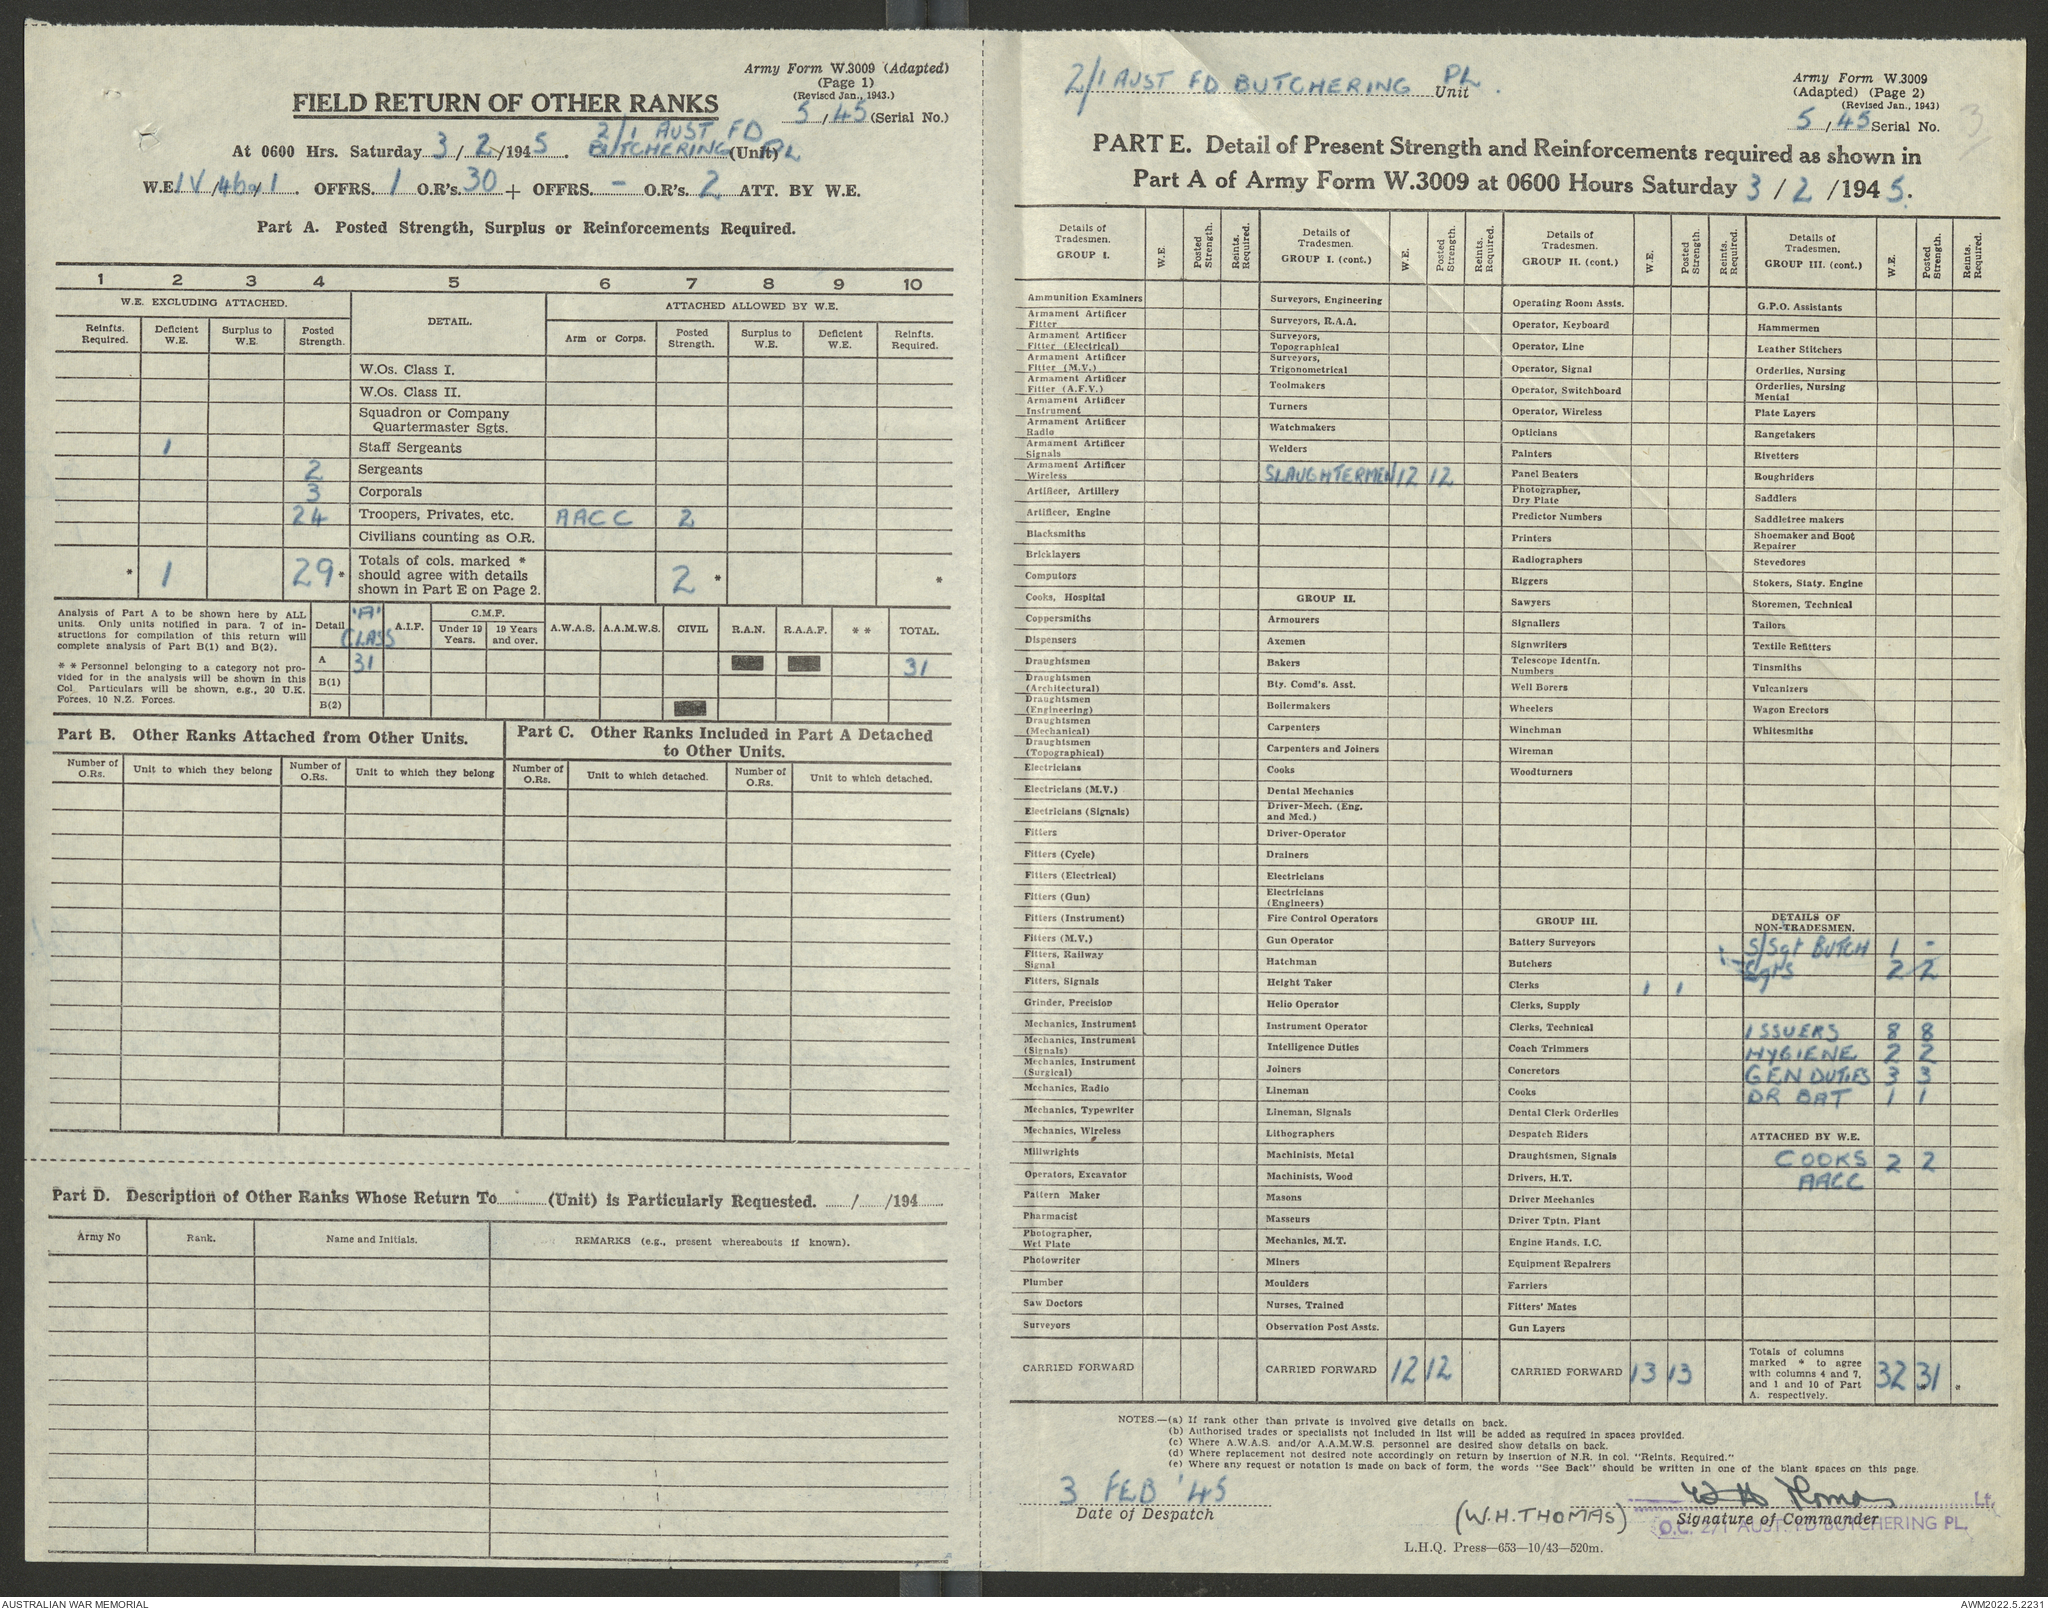 Army Form W.3009 (Adapted)
(Page 1)
(Revised Jan., 1943.)
FIELD RETURN OF OTHER RANKS
5/45 (Serial No.)
At 0600 Hrs. Saturday 3/2/1945. 2/1 AUST FD BUTCHERING PL (Unit)
W.E. IV/46a/1. OFFRS. 1 O.R's. 30 + OFFRS. - O.R's. 2 ATT. BY W.E.
Part A. Posted Strength, Surplus or Reinforcements Required.
1 2 3 4 5 6 7 8 9 10
W.E. EXCLUDING ATTACHED. DETAIL. ATTACHED ALLOWED BY W.E.
Reinfts. Required. Deficient W.E. Surplus to W.E. Posted Strength. Arm or Corps. Posted Strength. Surplus to W.E. Deficient W.E. Reinfts. Required.
W.Os. Class I.
W.Os. Class II.
Squadron or Company
Quartermaster Sgts.
1 Staff Sergeants
2 Sergeants
3 Corporals
24 Troopers, Privates, etc. AACC 2
Civilians counting as O.R.
* 1 29 * Totals of cols. marked * 2 * *
should agree with details
shown in Part E on Page 2.
Analysis of Part A to be shown here by ALL
units. Only units notified in para. 7 of in-
structions for compilation of this return will
complete analysis of Part B(1) and B(2).
* * Personnel belonging to a category not pro-
vided for in the analysis will be shown in this
Col Particulars will be shown, e.g., 20 U.K.
Forces, 10 N.Z. Forces.
Detail 'A' CLASS A.I.F. C.M.F. Under 19 Years. 19 Years and over. A.W.A.S. A.A.M.W.S. CIVIL R.A.N. R.A.A.F. * * TOTAL.
A 31 31
B(1)
B(2)
Part B. Other Ranks Attached from Other Units.
Part C. Other Ranks Included in Part A Detached
to Other Units.
Number of O.Rs. Unit to which they belong Number of O.Rs. Unit to which they belong Number of O.Rs. Unit to which detached. Number of O.Rs. Unit to which detached.
Part D. Description of Other Ranks Whose Return To (Unit) is Particularly Requested. / /194
Army No Rank. Name and Initials. REMARKS (e.g., present whereabouts if known).
2/1 AUST FD BUTCHERING PL. Unit
Army Form W.3009
(Adapted) (Page 2)
(Revised Jan., 1943)
5/45 Serial No.
3
PART E. Detail of Present Strength and Reinforcements required as shown in
Part A of Army Form W.3009 at 0600 Hours Saturday 3/2/1945.
Details of Tradesmen. GROUP I. W.E. Posted Strength. Reints. Required.
Ammunition Examiners
Armament Artificer Fitter
Armament Artificer Fitter (Electrical)
Armament Artificer Fitter (M.V.)
Armament Artificer Fitter (A.F.V.)
Armament Artificer Instrument
Armament Artificer Radio
Armament Artificer Signals
Armament Artificer Wireless
Artificer, Artillery
Artificer, Engine
Blacksmiths
Bricklayers
Computors
Cooks, Hospital
Coppersmiths
Dispensers
Draughtsmen
Draughtsmen (Architectural)
Draughtsmen (Engineering)
Draughtsmen (Mechanical)
Draughtsmen (Topographical)
Electricians
Electricians (M.V.)
Electricians (Signals)
Fitters
Fitters (Cycle)
Fitters (Electrical)
Fitters (Gun)
Fitters (Instrument)
Fitters (M.V.)
Fitters, Railway Signal
Fitters, Signals
Grinder, Precision
Mechanics, Instrument
Mechanics, Instrument (Signals)
Mechanics, Instrument (Surgical)
Mechanics, Radio
Mechanics, Typewriter
Mechanics, Wireless
Millwrights
Operators, Excavator
Pattern Maker
Pharmacist
Photographer, Wet Plate
Photowriter
Plumber
Saw Doctors
Surveyors
CARRIED FORWARD
Details of Tradesmen. GROUP I. (cont.) W.E. Posted Strength. Reints. Required.
Surveyors, Engineering
Surveyors, R.A.A.
Surveyors, Topographical
Surveyors, Trigonometrical
Toolmakers
Turners
Watchmakers
Welders
SLAUGHTERMEN 12 12
GROUP II.
Armourers
Axemen
Bakers
Bty. Comd's. Asst.
Boilermakers
Carpenters
Carpenters and Joiners
Cooks
Dental Mechanics
Driver-Mech. (Eng. and Med.)
Driver-Operator
Drainers
Electricians
Electricians (Engineers)
Fire Control Operators
Gun Operator
Hatchman
Height Taker
Helio Operator
Instrument Operator
Intelligence Duties
Joiners
Lineman
Lineman, Signals
Lithographers
Machinists, Metal
Machinists, Wood
Masons
Masseurs
Mechanics, M.T.
Miners
Moulders
Nurses, Trained
Observation Post Assts.
CARRIED FORWARD 12 12
Details of Tradesmen. GROUP II. (cont.) W.E. Posted Strength. Reints. Required.
Operating Room Assts.
Operator, Keyboard
Operator, Line
Operator, Signal
Operator, Switchboard
Operator, Wireless
Opticians
Painters
Panel Beaters
Photographer, Dry Plate
Predictor Numbers
Printers
Radiographers
Riggers
Sawyers
Signallers
Signwriters
Telescope Identfn. Numbers
Well Borers
Wheelers
Winchman
Wireman
Woodturners
GROUP III.
Battery Surveyors
Butchers
Clerks 1 1
Clerks, Supply
Clerks, Technical
Coach Trimmers
Concretors
Cooks
Dental Clerk Orderlies
Despatch Riders
Draughtsmen, Signals
Drivers, H.T.
Driver Mechanics
Driver Tptn. Plant
Engine Hands, I.C.
Equipment Repairers
Farriers
Fitters' Mates
Gun Layers
CARRIED FORWARD 13 13
Details of Tradesmen. GROUP III. (cont.) W.E. Posted Strength. Reints. Required.
G.P.O. Assistants
Hammermen
Leather Stitchers
Orderlies, Nursing
Orderlies, Nursing Mental
Plate Layers
Rangetakers
Rivetters
Roughriders
Saddlers
Saddletree makers
Shoemaker and Boot Repairer
Stevedores
Stokers, Staty. Engine
Storemen, Technical
Tailors
Textile Refitters
Tinsmiths
Vulcanizers
Wagon Erectors
Whitesmiths
DETAILS OF NON-TRADESMEN.
S/Sgt BUTCH 1 -
Sgts 2 2
ISSUERS 8 8
HYGIENE 2 2
GEN DUTIES 3 3
DR BAT 1 1
ATTACHED BY W.E.
COOKS 2 2
AACC
Totals of columns marked * to agree with columns 4 and 7, and 1 and 10 of Part A. respectively. 32 31 *
NOTES.—(a) If rank other than private is involved give details on back.
(b) Authorised trades or specialists not included in list will be added as required in spaces provided.
(c) Where A.W.A.S. and/or A.A.M.W.S. personnel are desired show details on back.
(d) Where replacement not desired note accordingly on return by insertion of N.R. in col. "Reints. Required."
(e) Where any request or notation is made on back of form, the words "See Back" should be written in one of the blank spaces on this page.
3 FEB '45
Date of Despatch
(W.H. THOMAS)
W H Thomas Lt.
Signature of Commander
O.C. 2/1 AUST. FD BUTCHERING PL.
L.H.Q. Press—653—10/43—520m.
AUSTRALIAN WAR MEMORIAL
AWM2022.5.2231